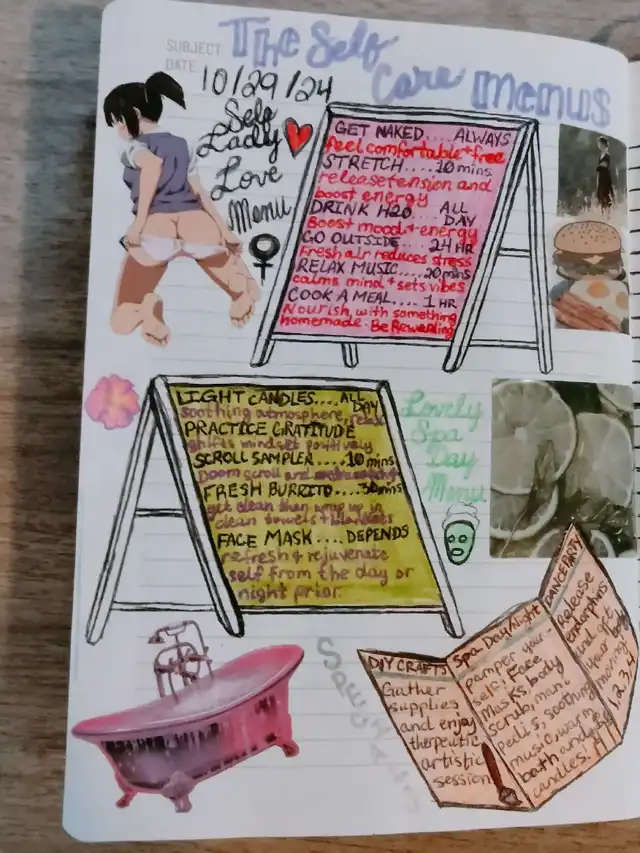 SUBJECT
DATE
The Self
Care Menus
10/29/24
Self
Lady
Love
Menu
GET NAKED.... ALWAYS
feel comfortable + free
STRETCH..... 10 mins.
release tension and
boost energy
DRINK H2O... ALL
DAY
Boost mood + energy
GO OUTSIDE.... 24 HR
Fresh air reduces stress
RELAX MUSIC.... 20 mins
calms mind + sets vibes
COOK A MEAL.... 1 HR
Nourish, with something
homemade. Be Rewarding
LIGHT CANDLES.... ALL
DAY
soothing atmosphere, relax
PRACTICE GRATITUDE
shifts mindset positively
SCROLL SAMPLER.... 10 mins
Doom scroll and
FRESH BURRITO.... 30 mins
get clean then wrap up in
clean towels + blankets
FACE MASK.... DEPENDS
refresh & rejuvenate
self from the day or
night prior.
Lovely
Spa
Day
Menu
DIY CRAFTS
Gather
supplies
and enjoy
therpeutic
artistic
session
Spa Day/Night
Pamper your-
self: Face
Masks, body
scrub, mani
pedis, soothing
music, warm
bath and
candles!
DANCE PARTY
Release
endorphins
and get
your body
moving!
1,2,3,4